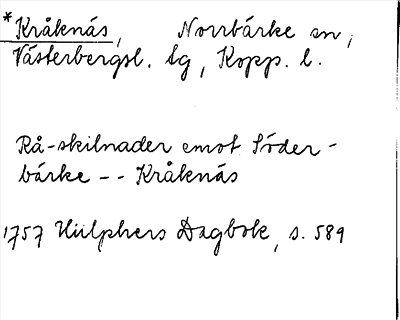 *Kråknäs, Norrbärke sn,
Västerbergsl. tg, Kopp. l.
Rå-skilnader emot Söder-
bärke -- Kråknäs
1757 Hülphers Dagbok, s. 589